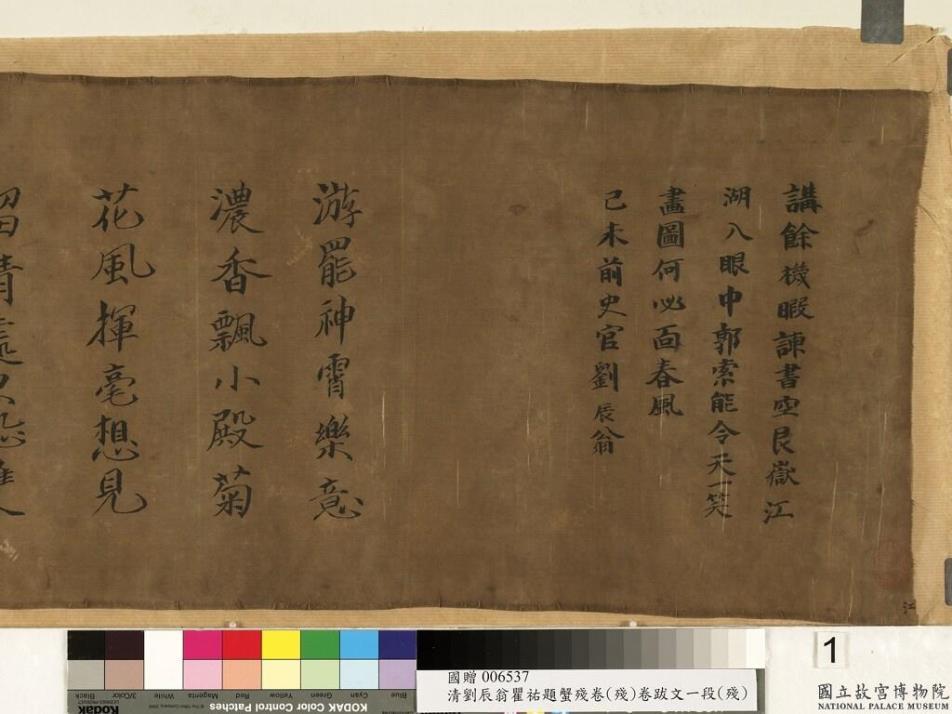 講餘機暇諫書空艮嶽江
湖入眼中郭索能令天一笑
畫圖何必面春風
己未前史官劉辰翁
游罷神霄樂意
濃香飄小殿菊
花風揮毫想見
江
Black
3/Color
White
Magenta
Red
Yellow
Green
Cyan
Blue
Kodak
KODAK Color Control Patches
國贈 006537
清劉辰翁瞿祐題蟹殘卷(殘)卷跋文一段(殘)
1
國立故宮博物院
NATIONAL PALACE MUSEUM